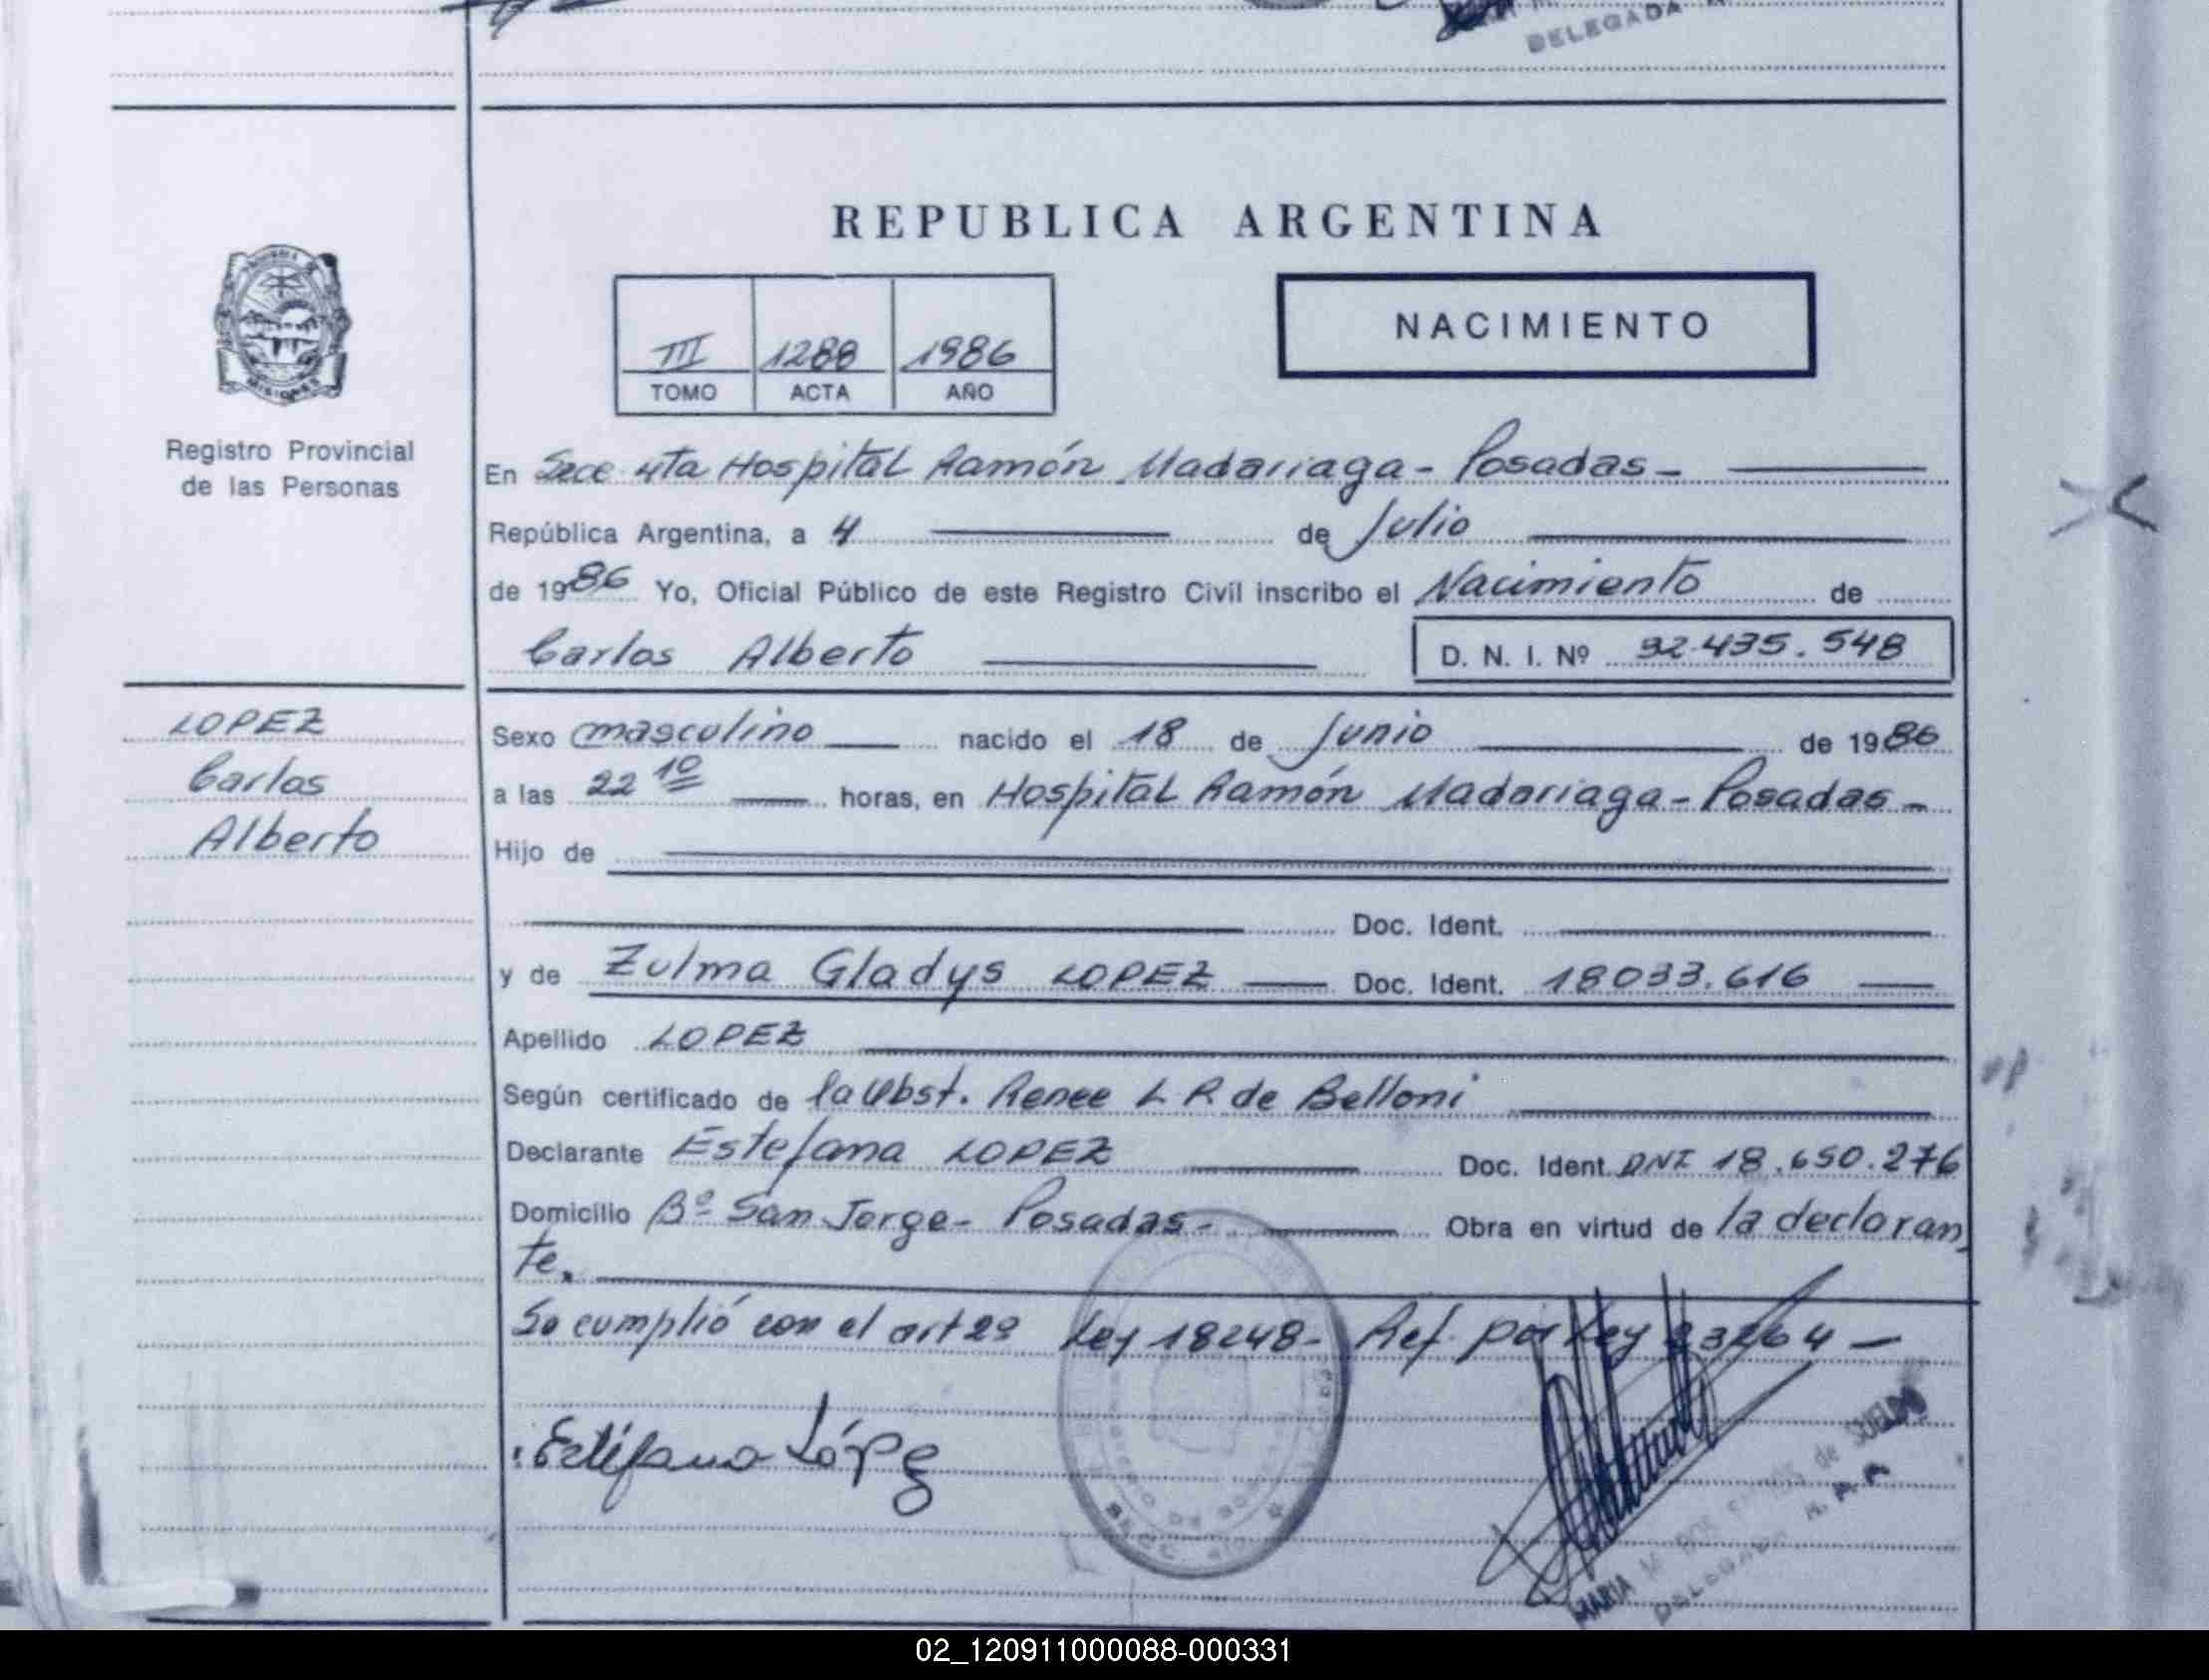 DELEGADA
REPUBLICA ARGENTINA
III 1288 1986
TOMO ACTA AÑO
NACIMIENTO
Registro Provincial
de las Personas
En Secc 4ta Hospital Ramón Madariaga - Posadas -
República Argentina, a 4 de Julio
de 1986 Yo, Oficial Público de este Registro Civil inscribo el Nacimiento de
Carlos Alberto D. N. I. Nº 32.435.548
LOPEZ
Carlos
Alberto
Sexo masculino nacido el 18 de Junio de 1986
a las 22 10 horas, en Hospital Ramón Madariaga - Posadas -
Hijo de
Doc. Ident.
y de Zulma Gladys LOPEZ Doc. Ident. 18033.616
Apellido LOPEZ
Según certificado de la Obst. Renee L R de Belloni
Declarante Estefana LOPEZ Doc. Ident. DNI 18.650.276
Domicilio Bº San Jorge - Posadas - Obra en virtud de la declaran
te.
Se cumplió con el art 2º Ley 18248 - Ref. por Ley 23264 -
Estéfana López
MARIA de SUELDO
DELEGADA
02_120911000088-000331